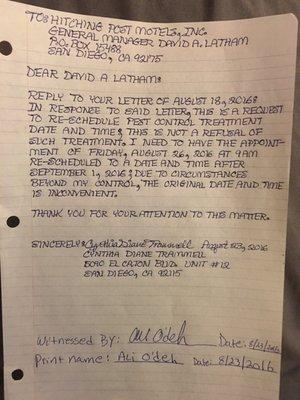 TO: HITCHING POST MOTELS, INC.
GENERAL MANAGER DAVID A. LATHAM
P.O. BOX 15488
SAN DIEGO, CA 92175
DEAR DAVID A. LATHAM:
REPLY TO YOUR LETTER OF AUGUST 18, 2016:
IN RESPONSE TO SAID LETTER, THIS IS A REQUEST
TO RE-SCHEDULE PEST CONTROL TREATMENT
DATE AND TIME; THIS IS NOT A REFUSAL OF
SUCH TREATMENT. I NEED TO HAVE THE APPOINT-
MENT OF FRIDAY, AUGUST 26, 2016 AT 9AM
RE-SCHEDULED TO A DATE AND TIME AFTER
SEPTEMBER 1, 2016; DUE TO CIRCUMSTANCES
BEYOND MY CONTROL, THE ORIGINAL DATE AND TIME
IS INCONVENIENT.
THANK YOU FOR YOUR ATTENTION TO THIS MATTER.
SINCERELY: Cynthia Diane Trammell August 23, 2016
CYNTHIA DIANE TRAMMELL
5090 EL CAJON BLVD. UNIT #12
SAN DIEGO, CA 92115
Witnessed By: Ali O'deh Date: 8/23/2016
Print name: Ali O'deh Date: 8/23/2016